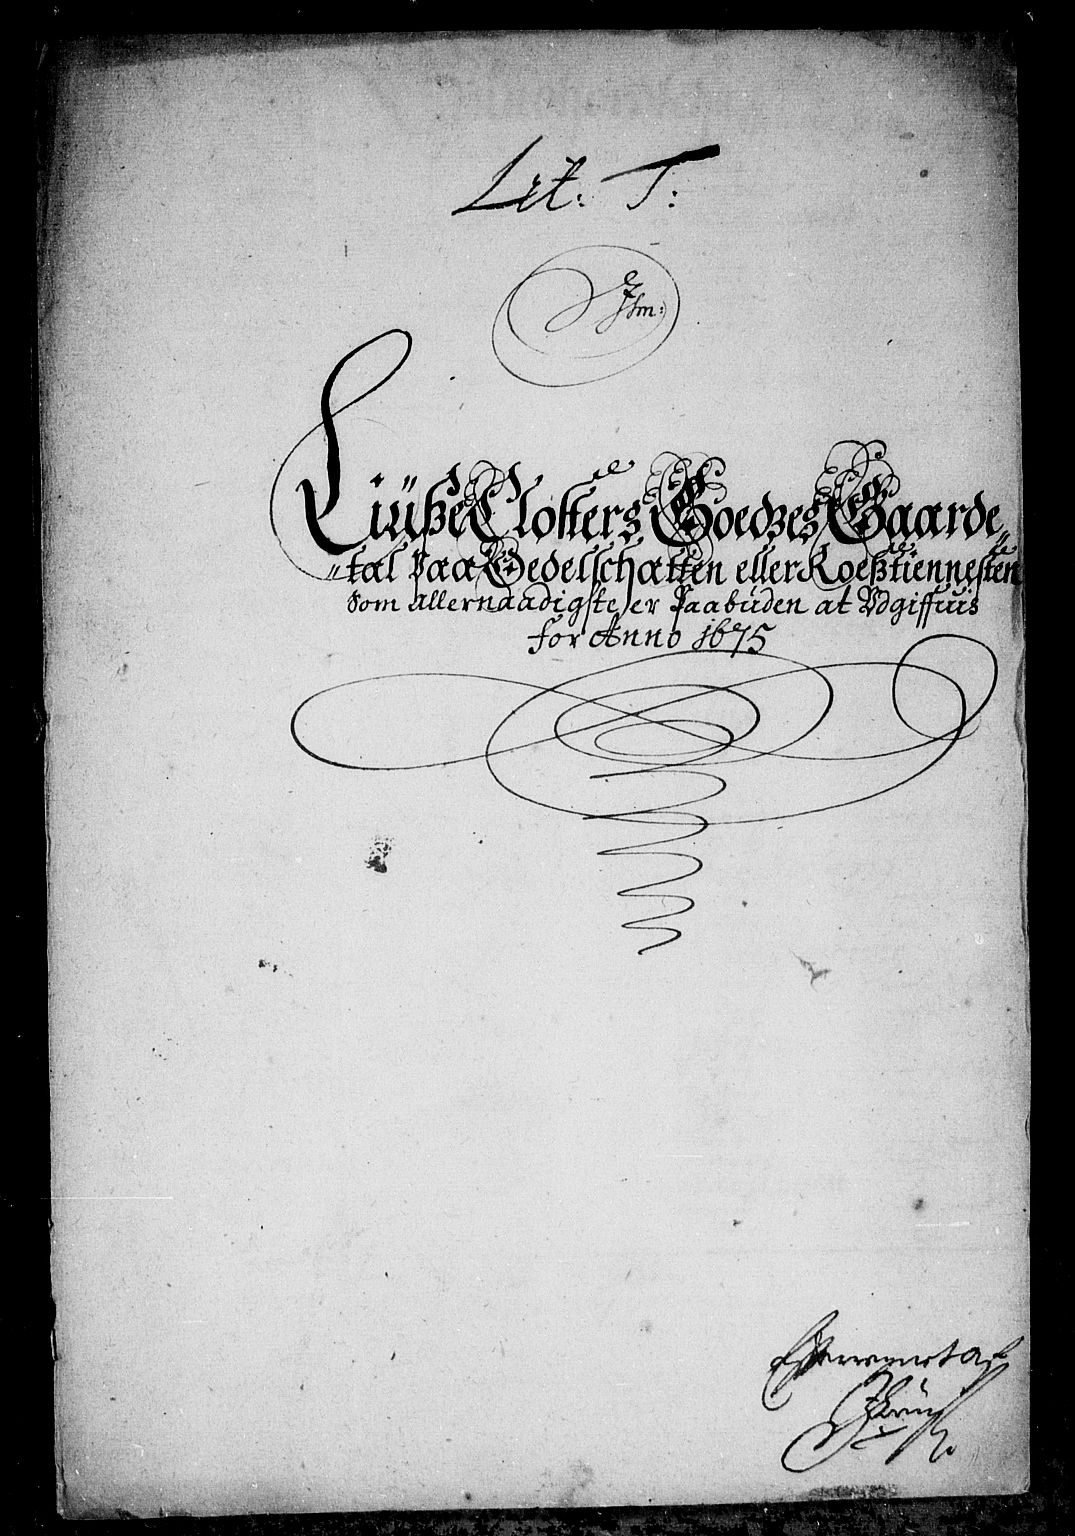 Lit: T:
Liüße Closters Goedzes Gaarde„
„tal Paa Gedelschatten eller Roeßtiennesten
Som allernaadigste er Paabüden at Vdgiffuis
for Anno 1675